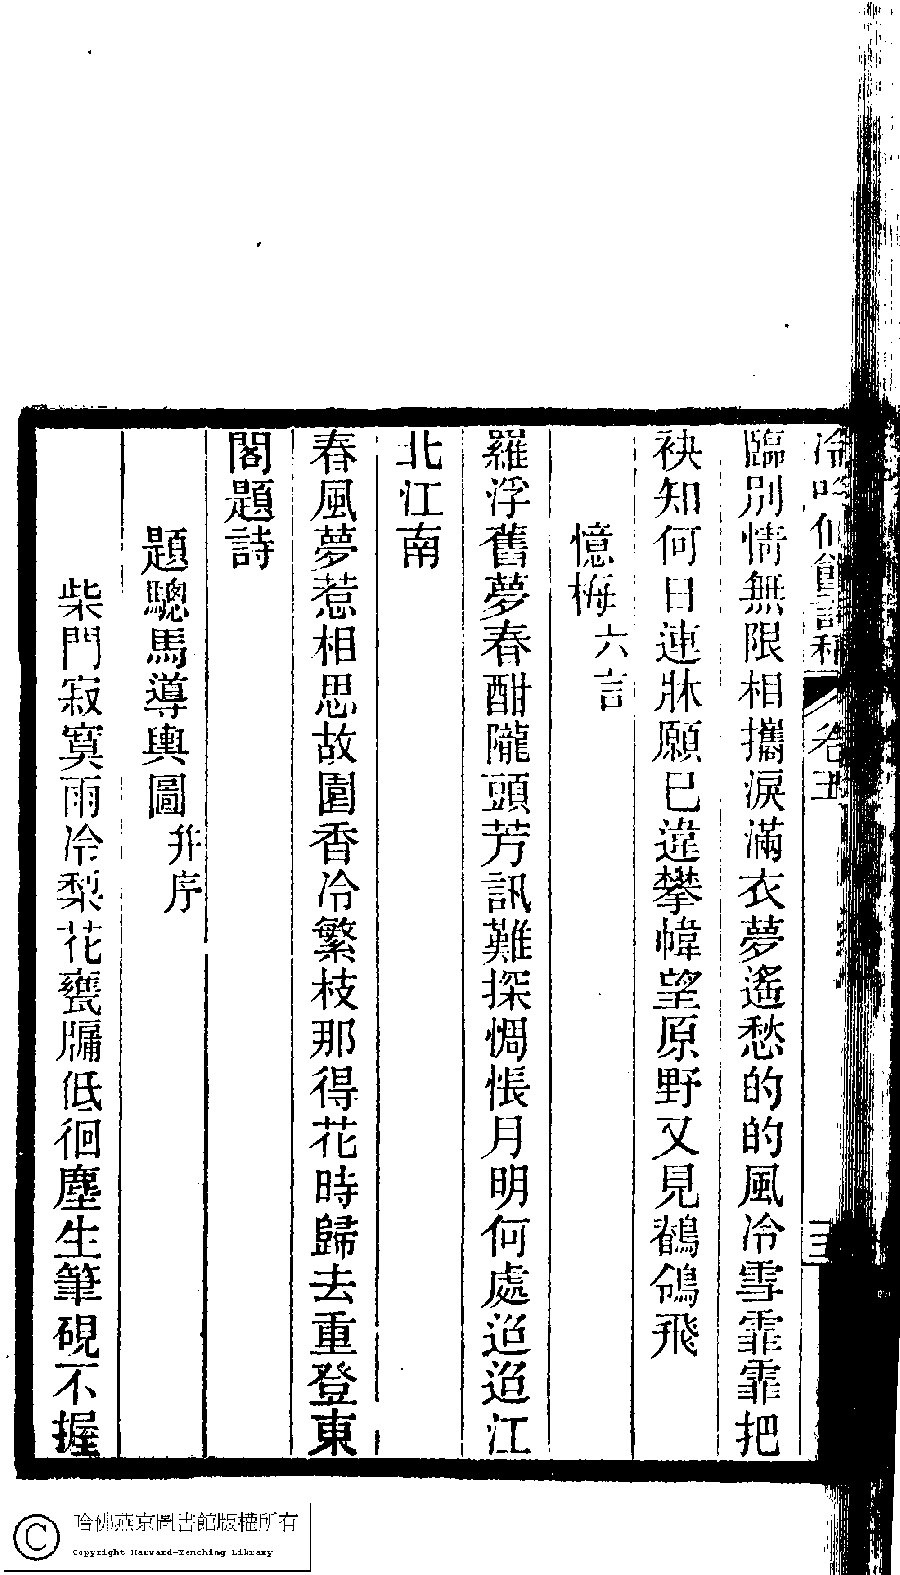 冷吟仙館詩稿 卷五 三
臨別情無限相攜淚滿衣夢遙愁的的風冷雪霏霏把
袂知何日連牀願已違攀幃望原野又見鶺鴒飛
憶梅六言
羅浮舊夢春酣隴頭芳訊難探惆悵月明何處迢迢江
北江南
春風夢惹相思故園香冷繁枝那得花時歸去重登東
閣題詩
題驄馬導輿圖并序
柴門寂寞雨冷梨花甕牖低徊塵生筆硯不握
哈佛燕京圖書館版權所有
Copyright Harvard-Yenching Library